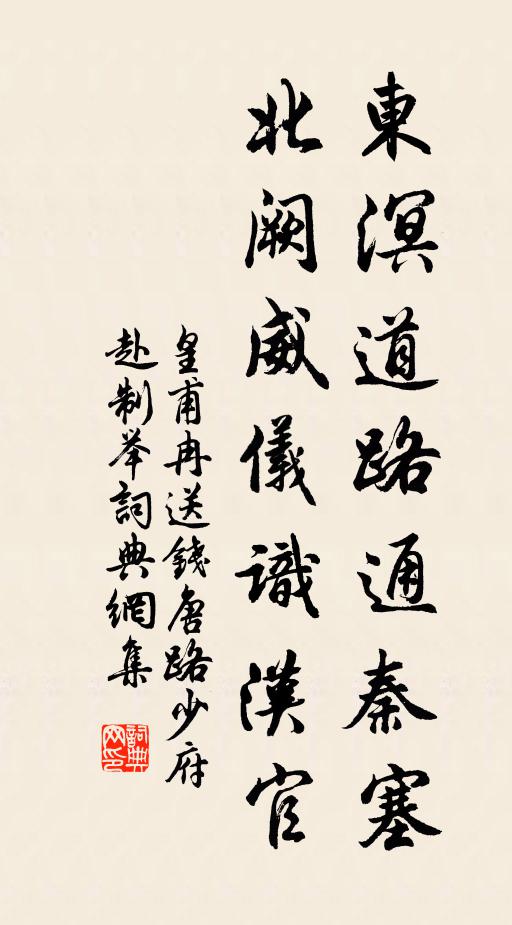 東溟道路通秦塞
北闕威儀識漢官
皇甫冉送錢唐路少府
赴制举詞典網集
詞典网印